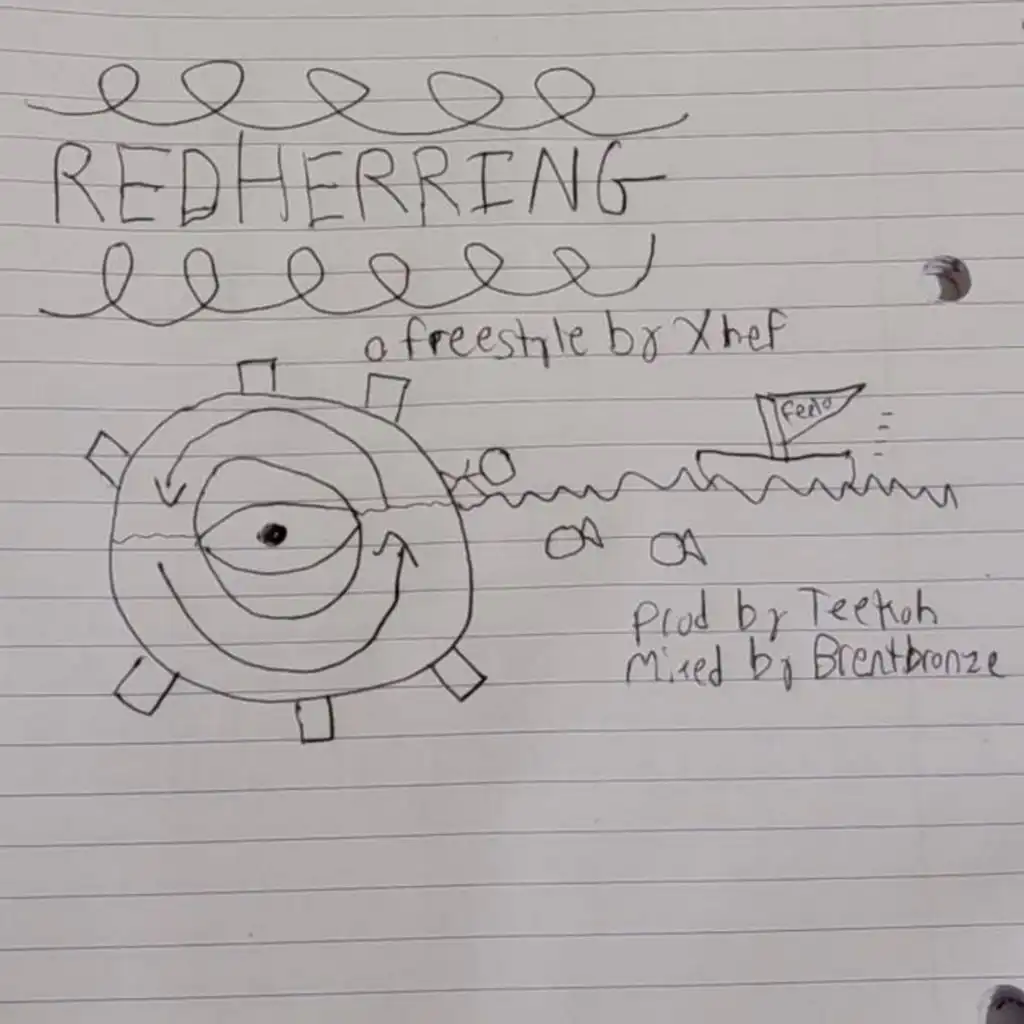 REDHERRING
a freestyle by Xhef
Prod by Teekoh
Mixed by Brentbronze